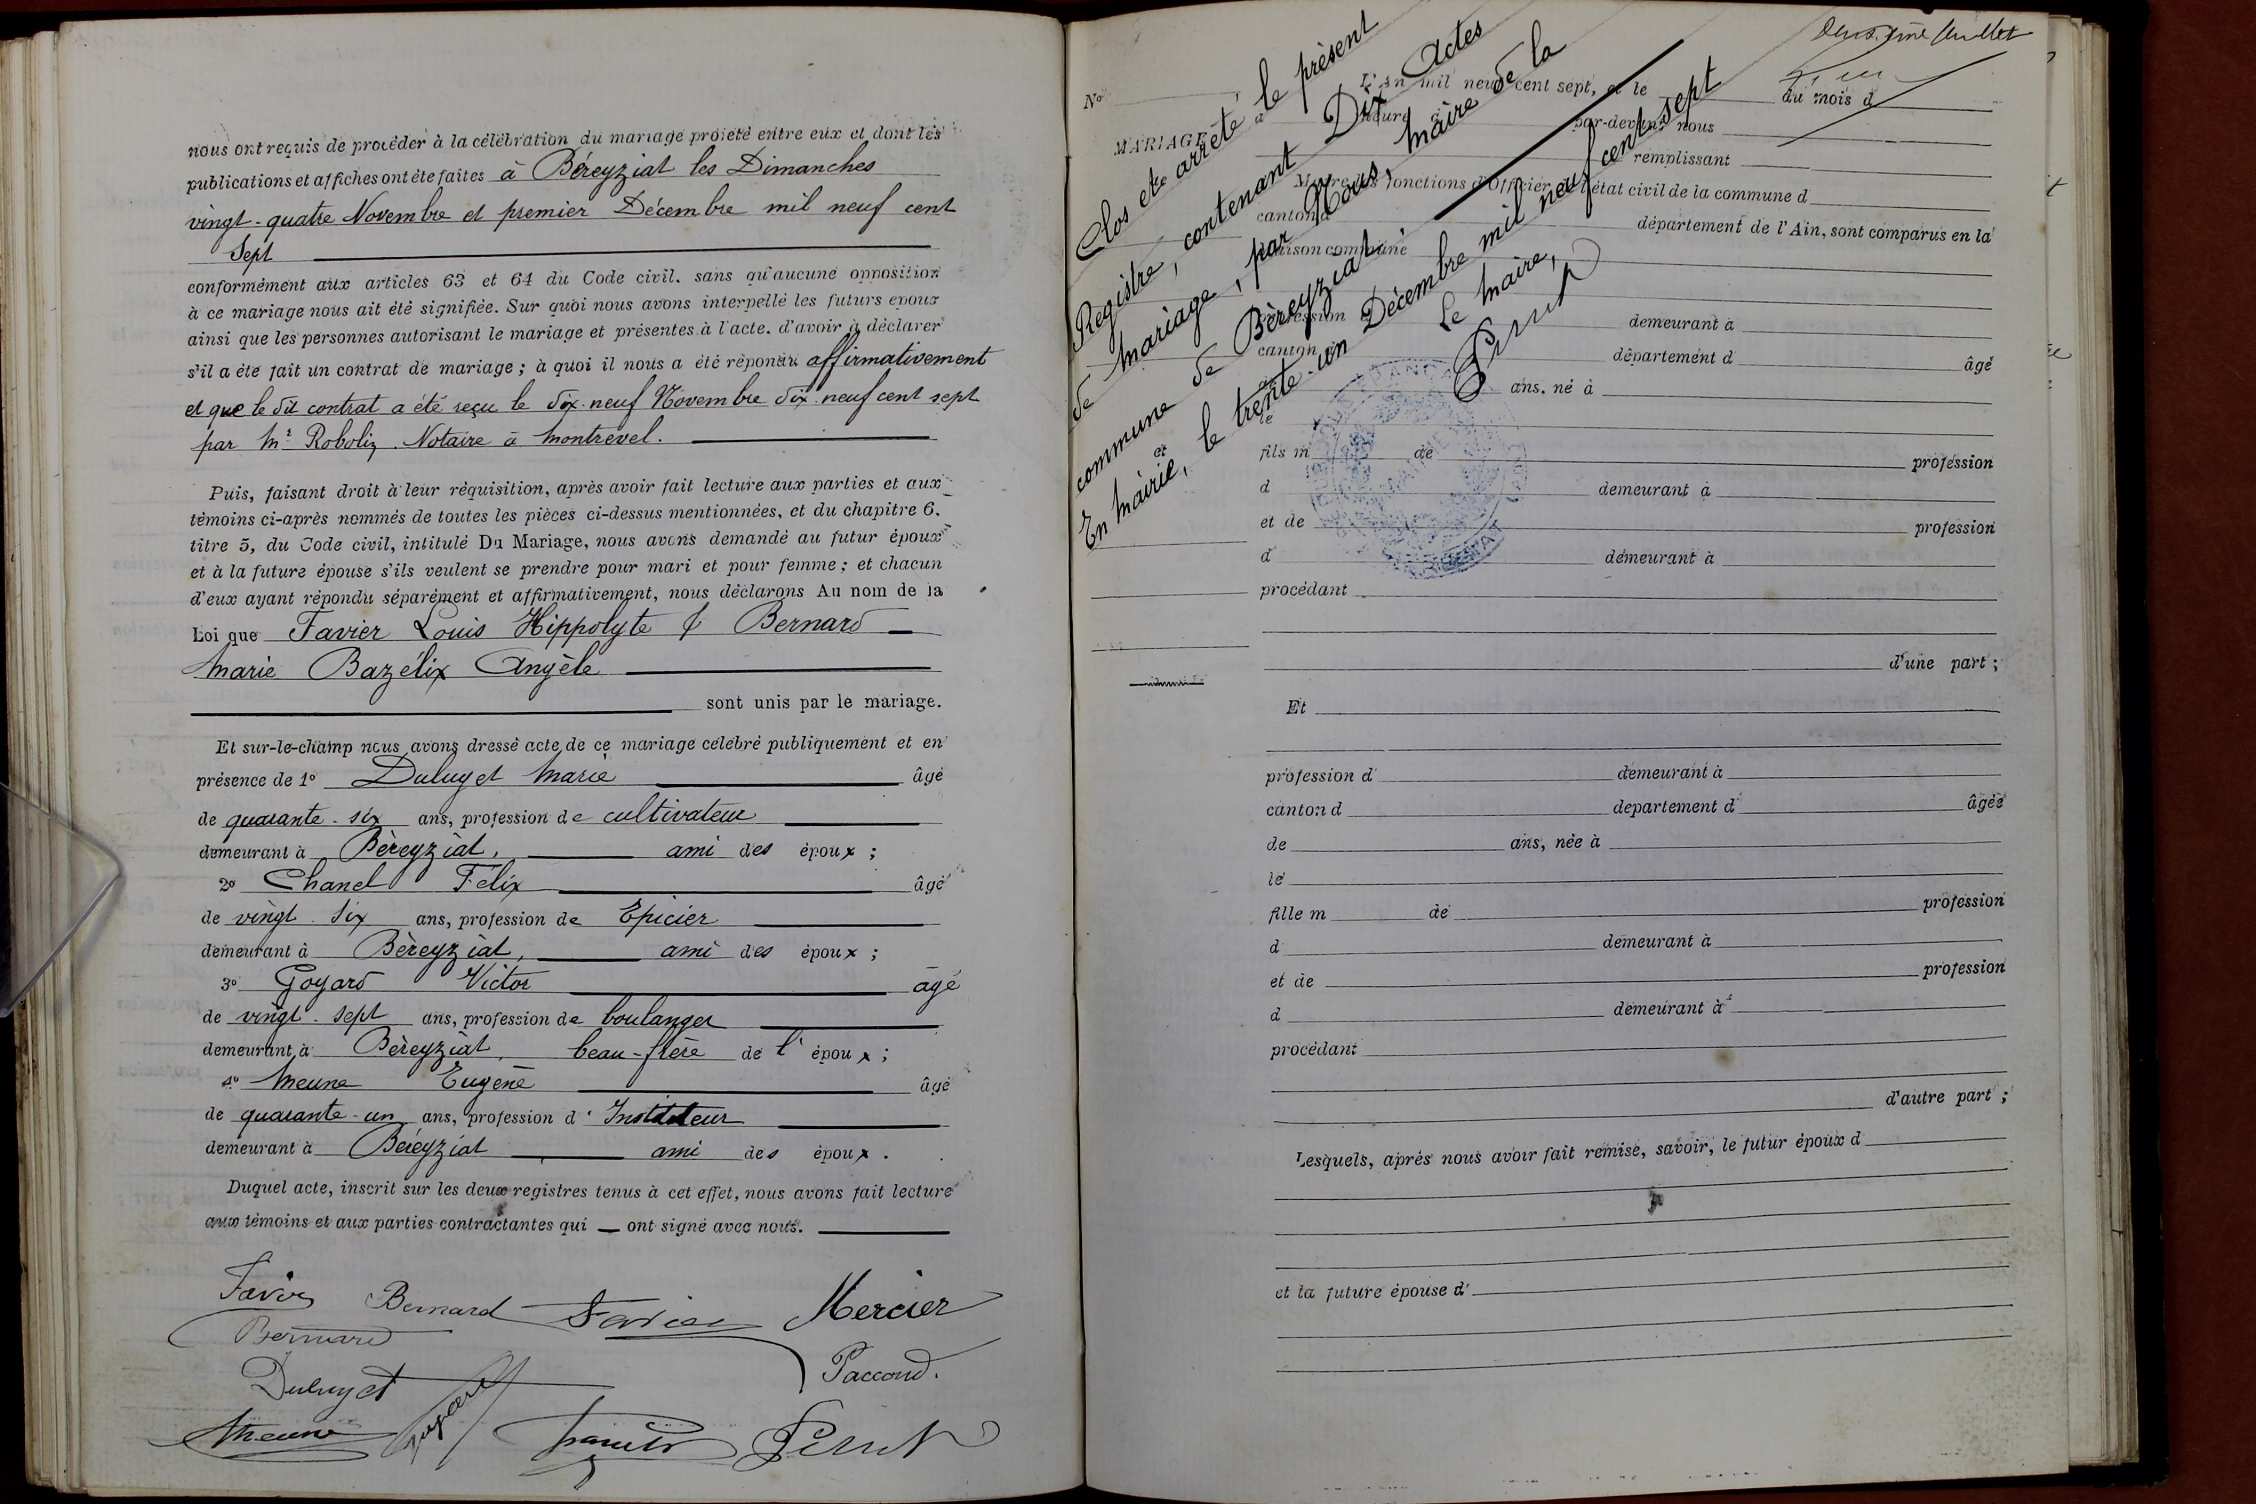 nous ont requis de procéder à la célébration du mariage projeté entre eux et dont les
publications et affiches ont été faites à Béreyziat les Dimanches
vingt-quatre Novembre et premier Décembre mil neuf cent
Sept
conformément aux articles 63 et 64 du Code civil, sans qu'aucune opposition
à ce mariage nous ait été signifiée. Sur quoi nous avons interpellé les futurs époux
ainsi que les personnes autorisant le mariage et présentes à l'acte, d'avoir à déclarer
s'il a été fait un contrat de mariage ; à quoi il nous a été répondu affirmativement
et que le dit contrat a été reçu le dix-neuf Novembre dix-neuf cent sept
par Mr Robolin Notaire à Montrevel.
Puis, faisant droit à leur réquisition, après avoir fait lecture aux parties et aux
témoins ci-après nommés de toutes les pièces ci-dessus mentionnées, et du chapitre 6,
titre 5, du Code civil, intitulé Du Mariage, nous avons demandé au futur époux
et à la future épouse s'ils veulent se prendre pour mari et pour femme ; et chacun
d'eux ayant répondu séparément et affirmativement, nous déclarons Au nom de la
Loi que Favier Louis Hippolyte & Bernard
Marie Bazélix Angèle
sont unis par le mariage.
Et sur-le-champ nous avons dressé acte de ce mariage célébré publiquement et en
présence de 1o Duluyet Marie âgé
de quarante-six ans, profession de cultivateur
demeurant à Béreyziat, ami des époux ;
2o Chanel Félix âgé
de vingt-six ans, profession de Epicier
demeurant à Béreyziat, ami des époux ;
3o Goyard Victor âgé
de vingt-sept ans, profession de boulanger
demeurant à Béreyziat, beau-frère de l'époux ;
4o Meune Eugène âgé
de quarante-un ans, profession d'Instituteur
demeurant à Béreyziat ami des époux.
Duquel acte, inscrit sur les deux registres tenus à cet effet, nous avons fait lecture
aux témoins et aux parties contractantes qui ont signé avec nous.
Bernard Favier Mercier
Bernard
Duluyet Paccoud.
Meune
Perrut
No L'An mil neuf cent sept, et le du mois d
MARIAGE à heure par-devant nous
remplissant
les fonctions d'Officier de l'état civil de la commune d
canton d département de l'Ain, sont comparus en la
maison commune
profession d demeurant à
canton d département d âgé
ans, né à
le
et
fils m de profession
d demeurant à
et de profession
d demeurant à
procédant
d'une part ;
Et
profession d demeurant à
canton d département d âgée
de ans, née à
le
fille m de profession
d demeurant à
et de profession
d demeurant à
procédant
d'autre part ;
Lesquels, après nous avoir fait remise, savoir, le futur époux d
et la future épouse d
Clos et arrêté le présent
Registre, contenant Dix Actes
de Mariage, par Nous, Maire de la
commune de Béreyziat.
En Mairie, le trente-un Décembre mil neuf cent sept
Le Maire,
Perrut